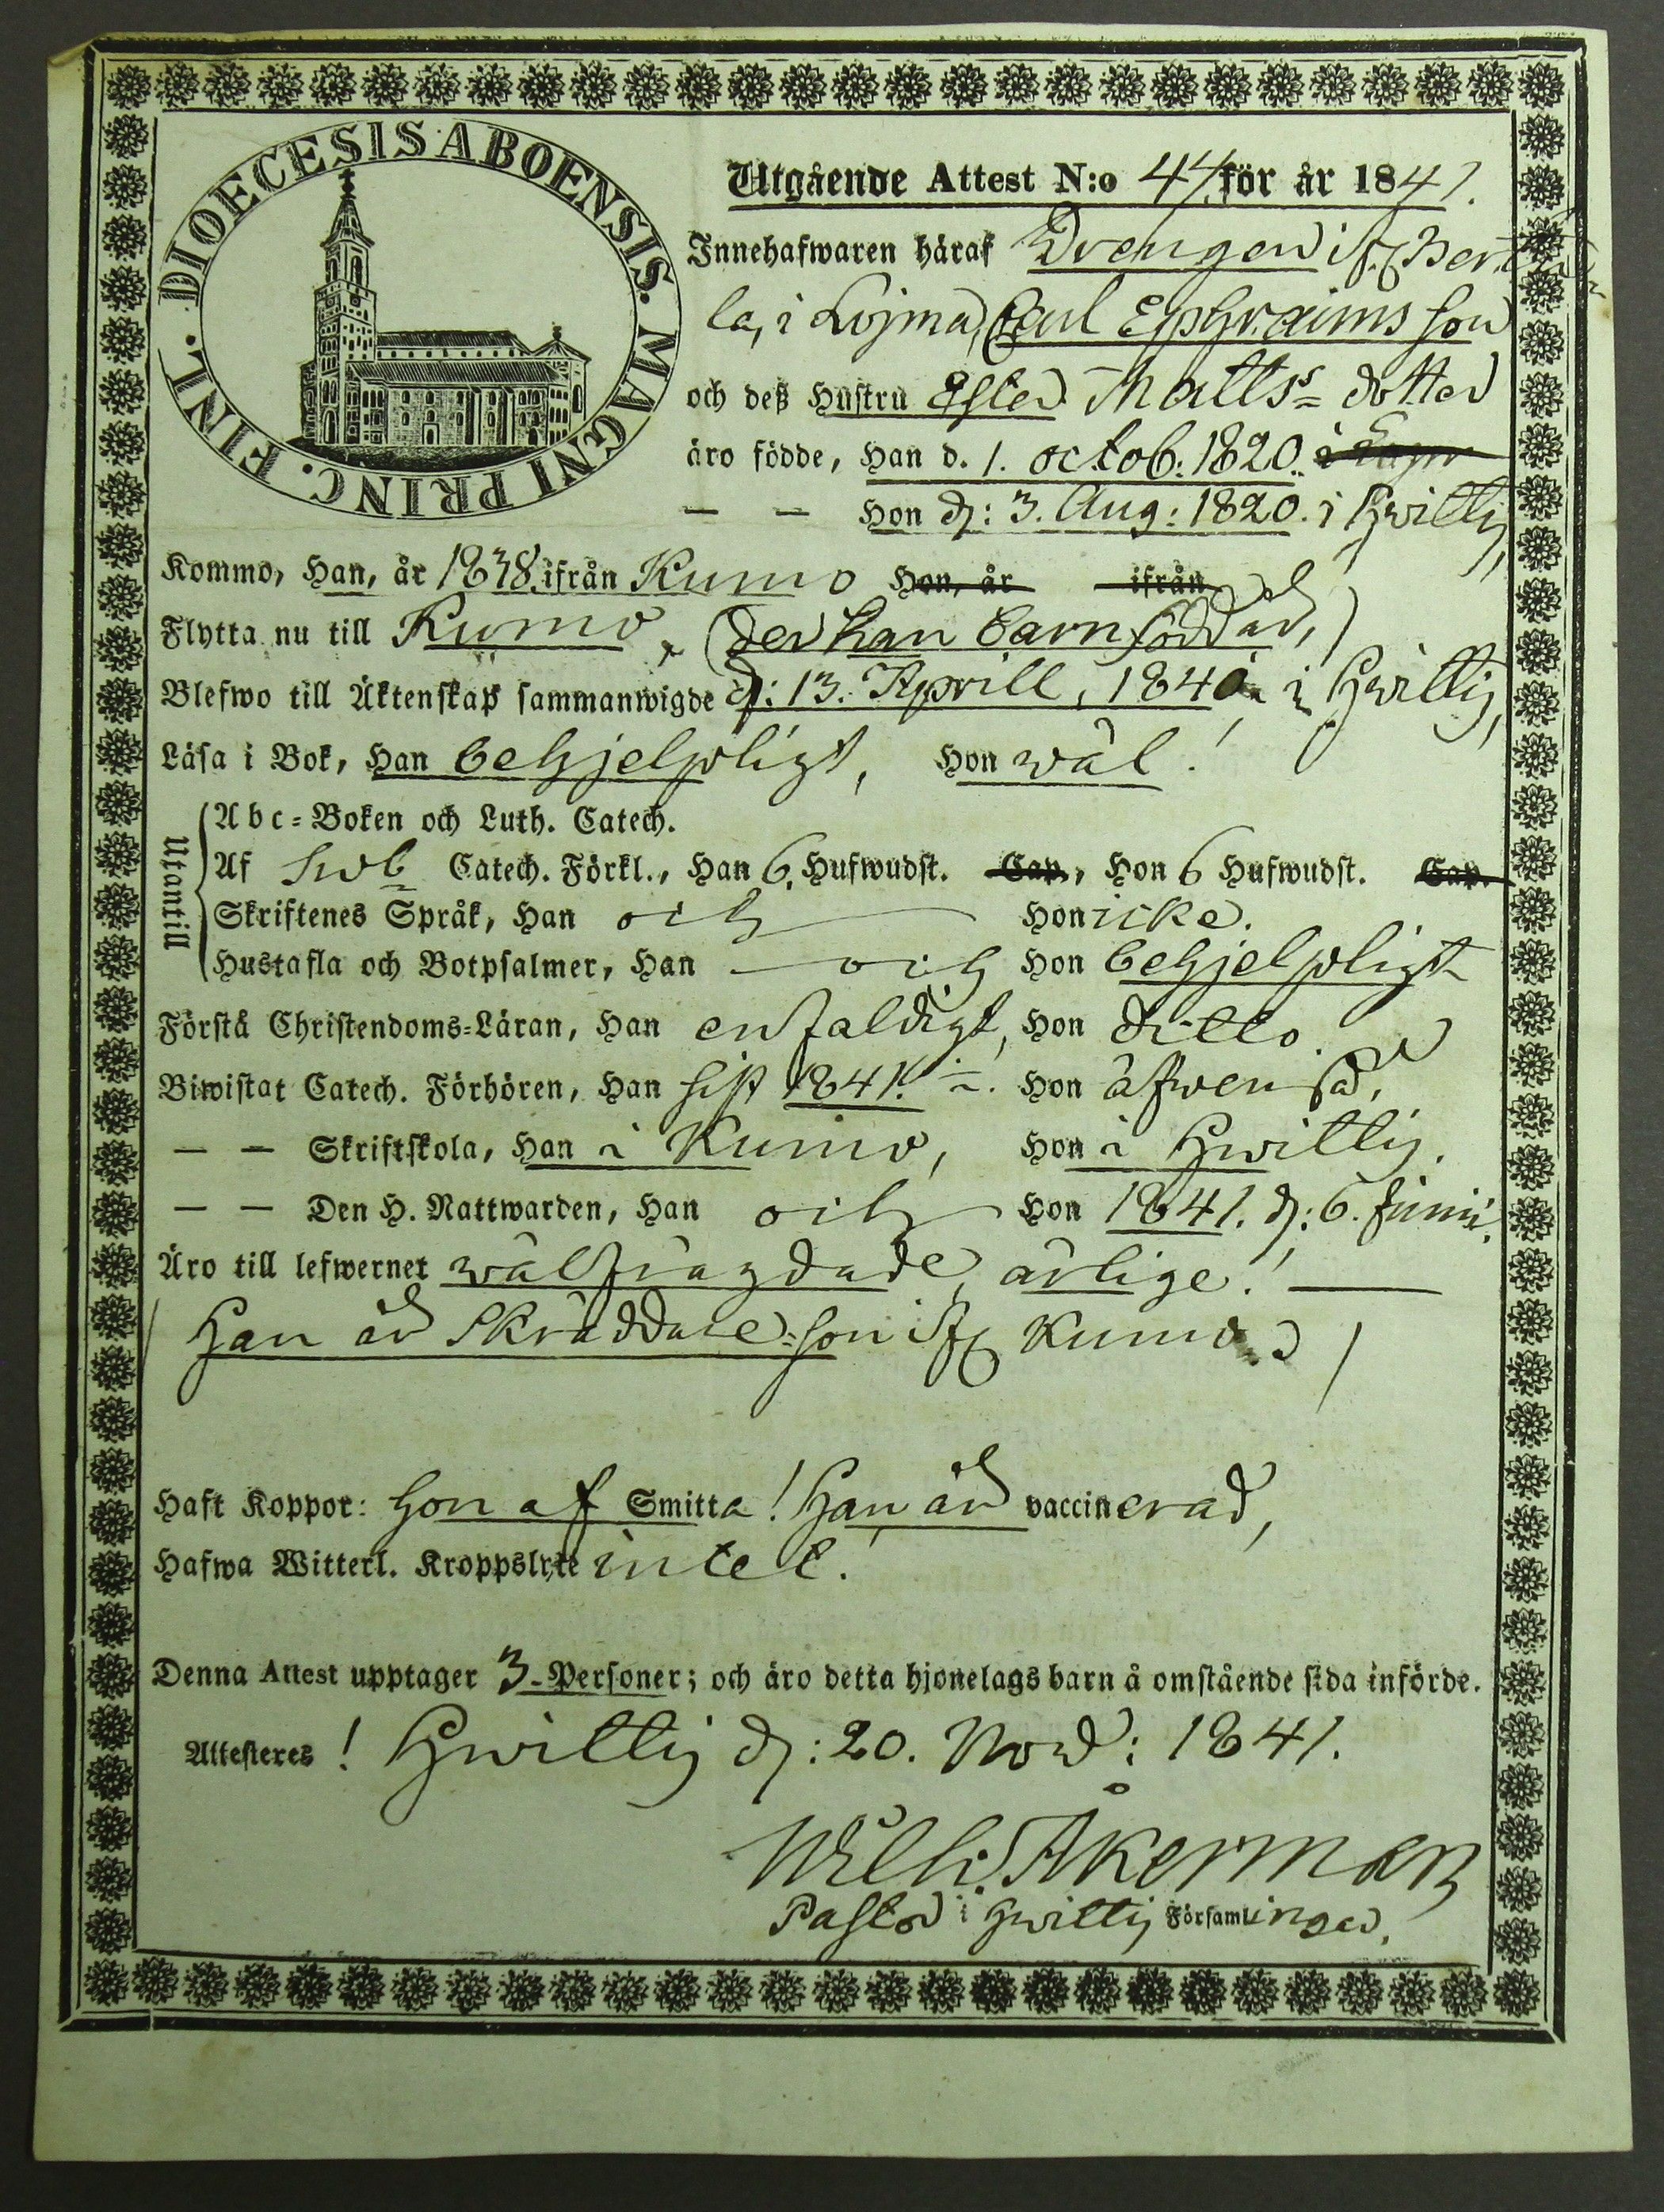 DIOECESIS ABOENSIS. MAGNI PRINC. FINL.
Utgående Attest N:o 44 för år 1841.
Innehafwaren häraf Drengen ifr. Bert
la, i Lojma, Carl Ephraims son
och deß Hustru Ester Matts= dotter
äro födde, Han d. 1. octob: 1820.
— — Hon d: 3. Aug: 1820. i Hwittis,
Kommo, Han, år 1838. ifrån Kumo Hon, år ifrån
Flytta nu till Kumo, (der han barnfödd är,)
Blefwo till Äktenskap sammanwigde d: 13. Aprill, 1840. i Hwittis,
Läsa i Bok, Han behjelpligt, Hon wäl!
Utantill
Abc=Boken och Luth. Catech.
Af Sweb Catech. Förkl., Han 6. Hufwudst. Cap., Hon 6 Hufwudst. Cap.
Skriftenes Språk, Han och Hon icke.
Hustafla och Botpsalmer, Han — och Hon behjelpligt
Förstå Christendoms=Läran, Han enfaldigt, Hon ditto.
Biwistat Catech. Förhören, Han sist 1841. Hon äfwen så,
— — Skriftskola, Han i Kumo, Hon i Hwittis.
— — Den H. Nattwarden, Han och Hon 1841. d: 6. Junii,
Äro till lefwernet wälfrägdade, ärlige! —
Han är Skräddare=son ifr. Kumo.
Haft Koppor: Hon af Smitta! Han är vaccinerad,
Hafwa Witterl. Kroppslyte intet!
Denna Attest upptager 3-Personer; och äro detta hjonelags barn å omstående sida införde.
Attesteres! Hwittis d: 20. Nov: 1841.
Wilh. Åkerman
Pastor i Hwittis Församlingar.